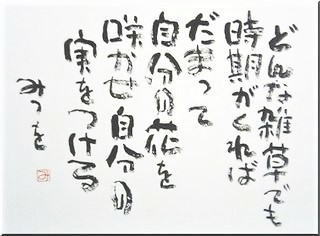 どんな雑草でも
時期がくれば
だまって
自分の花を
咲かせ自分の
実をつける
みつを